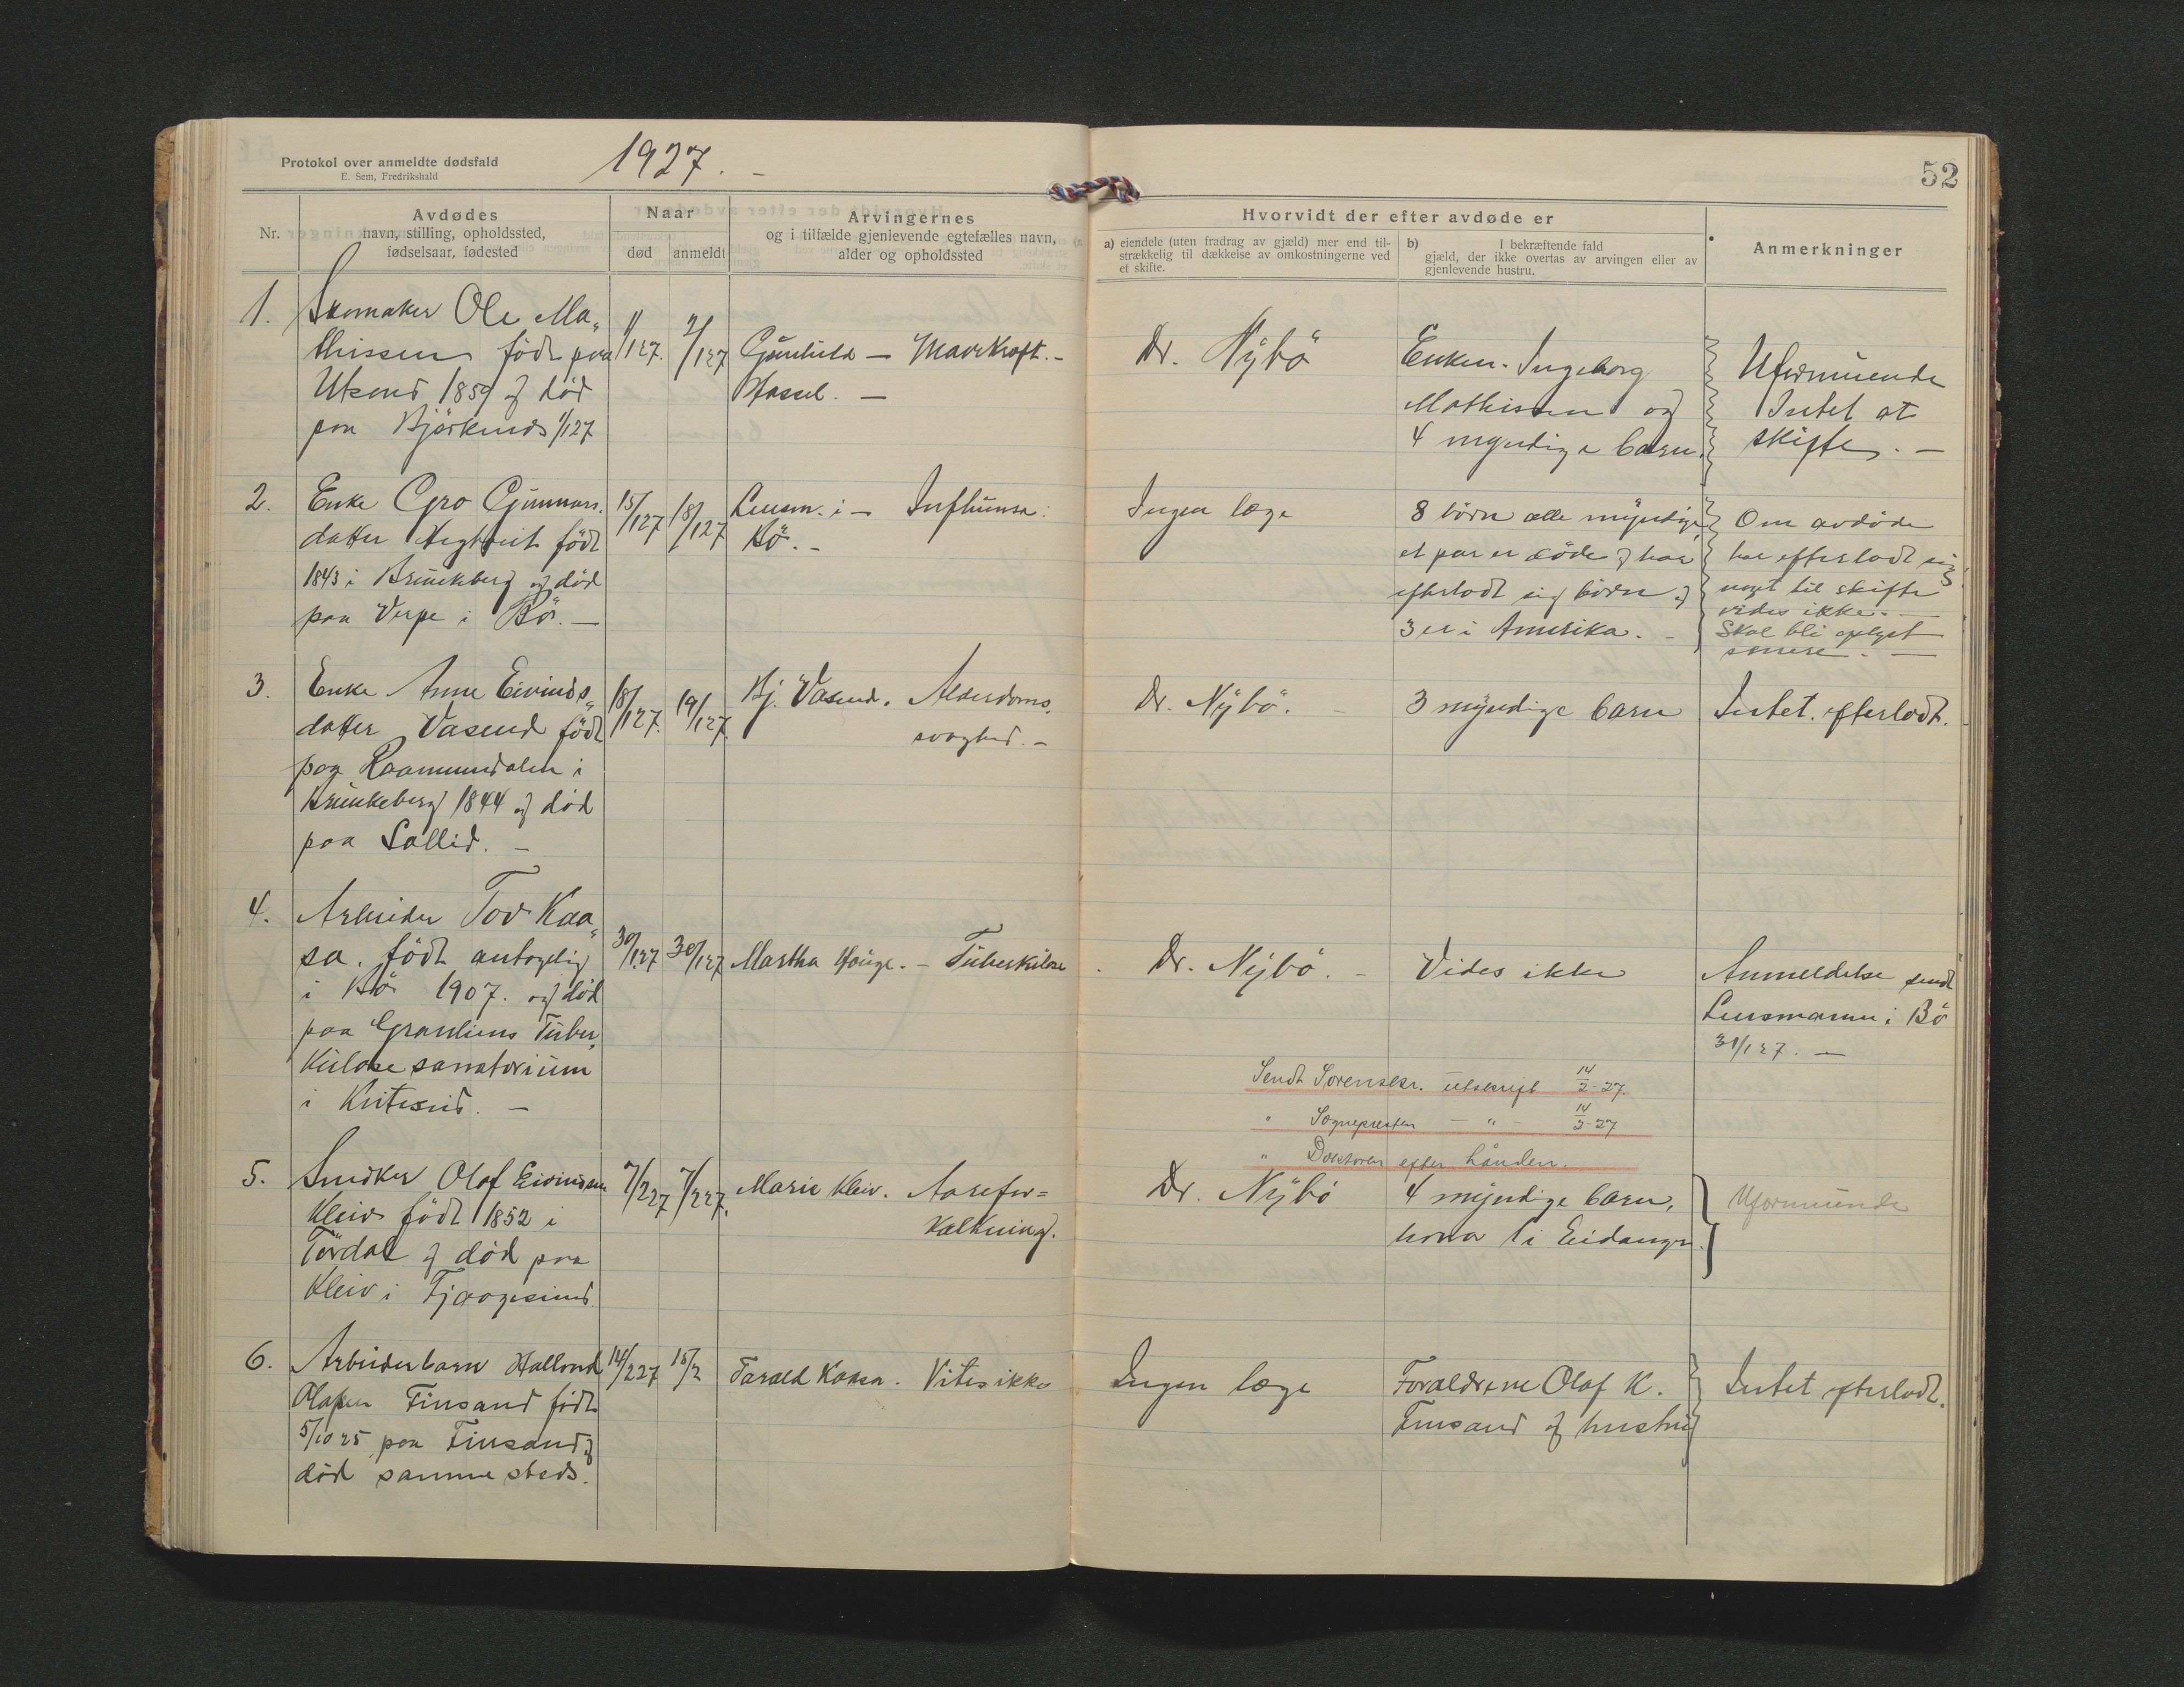 Protokol over anmeldte dødsfald
E. Sem, Fredrikshald
1927. -
52
Nr.
Avdødes
navn, stilling, opholdssted,
fødselsaar, fødested
Naar
død
anmeldt
Arvingernes
og i tilfælde gjenlevende egtefælles navn,
alder og opholdssted
Hvorvidt der efter avdøde er
a) eiendele (uten fradrag av gjæld) mer end til-
strækkelig til dækkelse av omkostningerne ved
et skifte.
b) I bekræftende fald
gjæld, der ikke overtas av arvingen eller av
gjenlevende hustru.
Anmerkninger
1.
Skomaker Ole Ma„
thissen født paa
1859 og død
paa 1/1 27
1/1 27.
2/1 27
Gunhild — Mavekræft. -
Hassel. —
Dr. Nybö
Enken. Ingeborg
Mathissen og
4 myndige barn.
Uformuende
Intet at
skifte. —
2.
Enke Gro Gunnars.
datter født
1843 i Brunkeberg og død
paa Verpe i Bö. —
15/1 27
18/1 27
Lensm. i — Influensa.
Bö. -
Ingen læge
8 börn alle myndige,
et par er döde og har
efterladt sig börn og
3 er i Amerika. -
Om avdöde
har efterladt sig
noget til skifte
vides ikke. -
Skal bli oplyst
senere. —
3.
Enke Anne Eivinds„
datter Vasend født
paa Raamundalen i
Brunkeberg 1844 og död
paa Sollid. —
18/1 27.
19/1 27.
Bj. Vasend. Alderdoms.
svaghed. -
Dr. Nybö. -
3 myndige barn
Intet. efterladt.
4.
Arbeider Tov Kaa„
sa. født antagelig
i Bö 1907. og død
paa Granliens Tuber„
kulose sanatorium
i Kviteseid. —
30/1 27
30/1 27
Martha Hauge. - Tuberkulose
Dr. Nybö. -
Vides ikke
Anmeldelse sendt
Lensmannen i Bö
31/1 27. —
Sendt Sorenskr. utskrift 14/2-27.
" Sognepresten - " - 14/2-27
" Doktoren efter hånden.
5.
Snedker Olaf Eivindsen
Kleiv født 1852 i
Tørdal og död paa
Kleiv i Fjaagesund.
7/2 27
7/2 27.
Marie Kleiv. Aarefor=
kalkning.
Dr. Nybö
4 myndige barn,
hvorav 1 i Eidanger.
Uformuende
6.
Arbeiderbarn Hallvard
Olafsen Finsand født
5/10 25 paa Finsand og
död sammesteds.
14/2 27
15/2
Tarald Kaasa. Vites ikke
Ingen læge
Forældrene Olaf K.
Finsand og hustru
Intet efterladt.